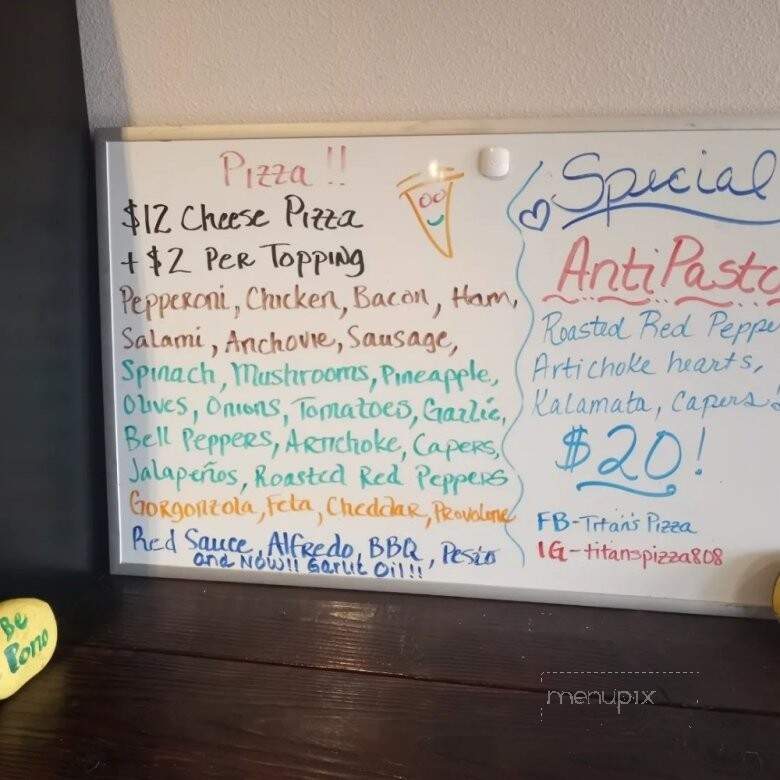 Pizza !!
$12 Cheese Pizza
+ $2 Per Topping
Pepperoni, Chicken, Bacon, Ham,
Salami, Anchovie, Sausage,
Spinach, Mushrooms, Pineapple,
Olives, Onions, Tomatoes, Garlic,
Bell Peppers, Artichoke, Capers,
Jalapeños, Roasted Red Peppers
Gorgonzola, Feta, Cheddar, Provolone
Red Sauce, Alfredo, BBQ, Pesto
and NOW!! Garlit Oil!!
Special
AntiPasto
Roasted Red Peppe
Artichoke hearts,
Kalamata, Capers
$20!
FB-Titan's Pizza
IG-titanspizza808
Be
Pono
menupix